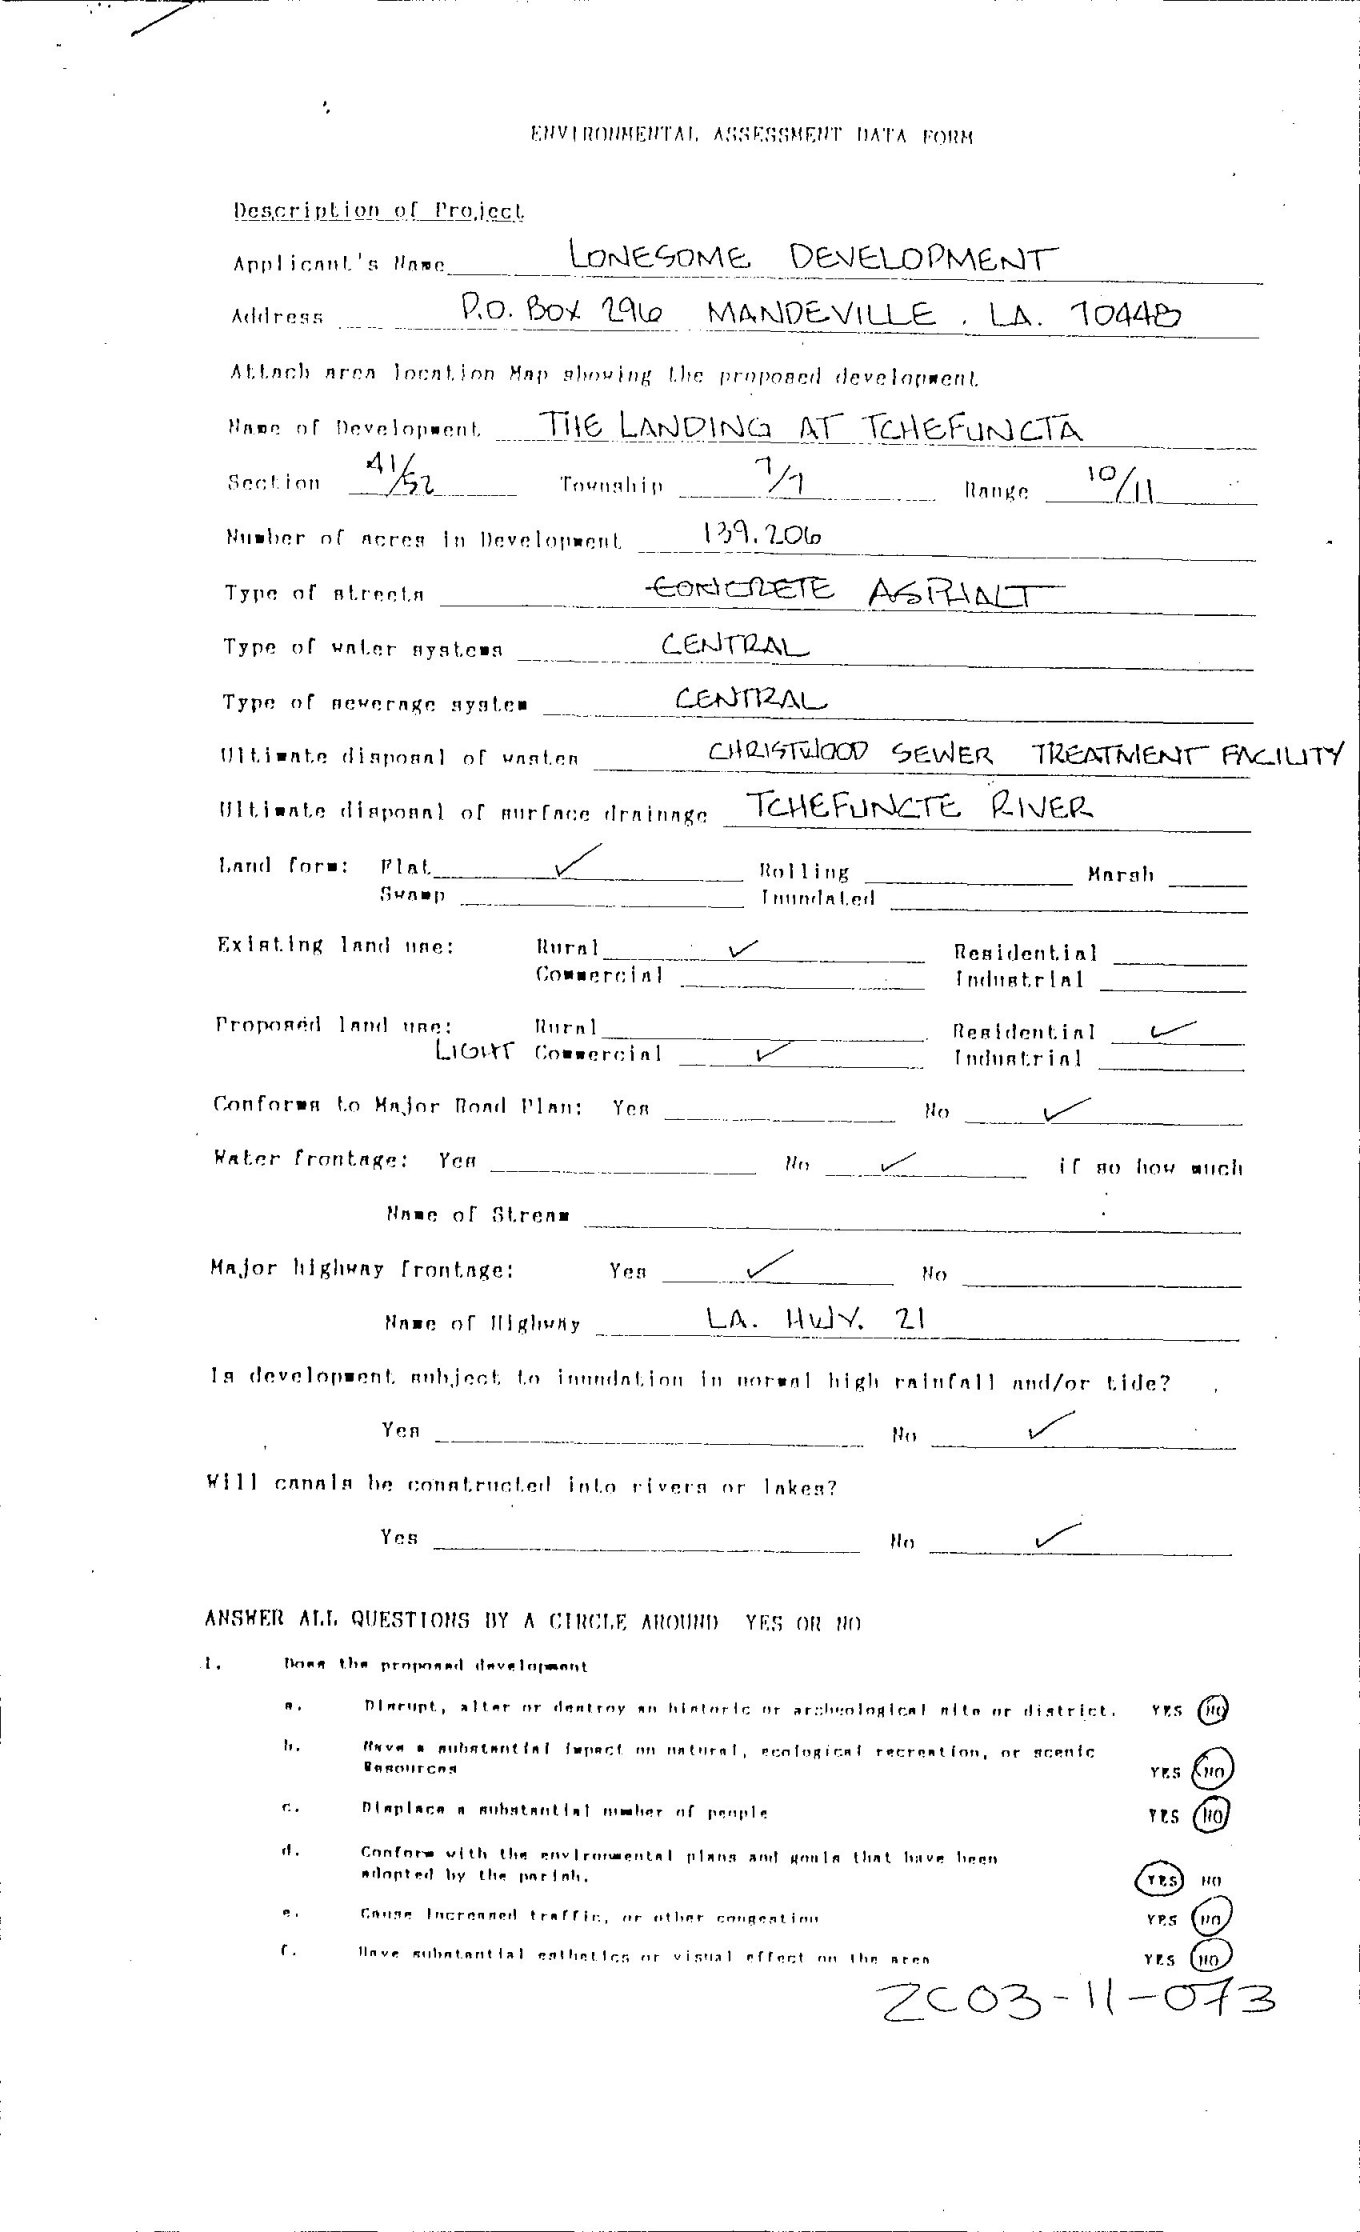 ENVIRONMENTAL ASSESSMENT DATA FORM
Description of Project
Applicant's Name LONESOME DEVELOPMENT
Address P.O. BOX 296 MANDEVILLE, LA. 70448
Attach area location Map showing the proposed development
Name of Development THE LANDING AT TCHEFUNCTA
Section 41/52 Township 7/7 Range 10/11
Number of acres in Development 139.206
Type of streets CONCRETE ASPHALT
Type of water systems CENTRAL
Type of sewerage system CENTRAL
Ultimate disposal of wastes CHRISTWOOD SEWER TREATMENT FACILITY
Ultimate disposal of surface drainage TCHEFUNCTE RIVER
Land form: Flat ✓ Rolling Marsh
Swamp Inundated
Existing land use: Rural ✓ Residential
Commercial Industrial
Proposed land use: Rural Residential ✓
LIGHT Commercial ✓ Industrial
Conforms to Major Road Plan: Yes No ✓
Water frontage: Yes No ✓ if so how much
Name of Stream
Major highway frontage: Yes ✓ No
Name of Highway LA. HWY. 21
Is development subject to inundation in normal high rainfall and/or tide?
Yes No ✓
Will canals be constructed into rivers or lakes?
Yes No ✓
ANSWER ALL QUESTIONS BY A CIRCLE AROUND YES OR NO
1. Does the proposed development
a. Disrupt, alter or destroy an historic or archeological site or district. YES NO
b. Have a substantial impact on natural, ecological recreation, or scenic
Resources YES NO
c. Displace a substantial number of people YES NO
d. Conform with the environmental plans and goals that have been
adopted by the parish. YES NO
e. Cause increased traffic, or other congestion YES NO
f. Have substantial esthetics or visual effect on the area YES NO
ZC03-11-073